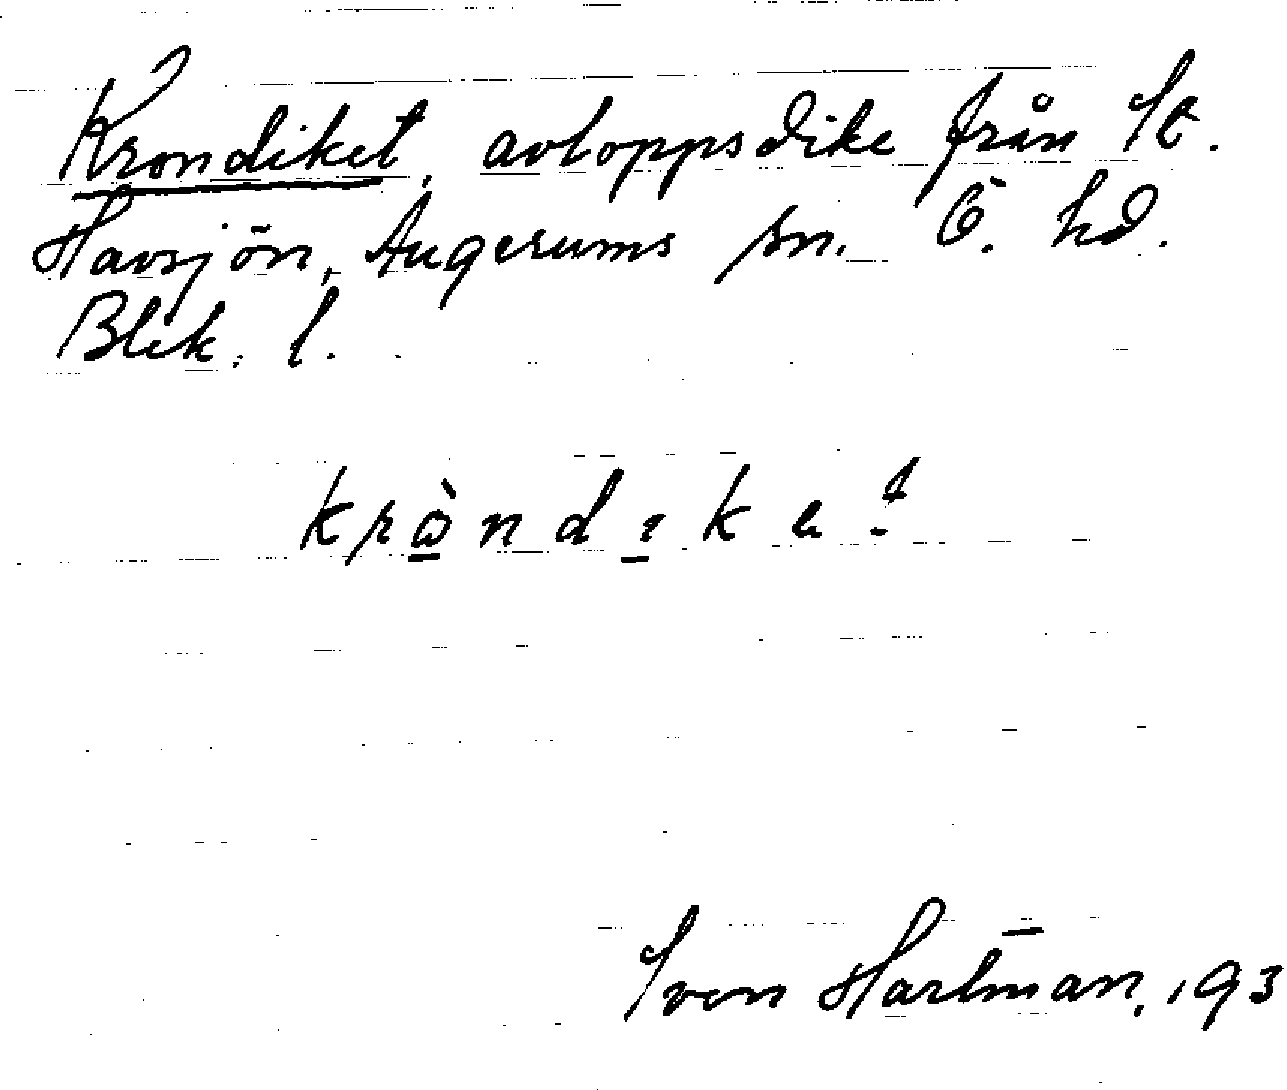 Krondiket, avloppsdike från St.
Havsjön, Augerums sn. Ö. hd.
Blek. l.
krὼndıket
Sven Hartman, 193